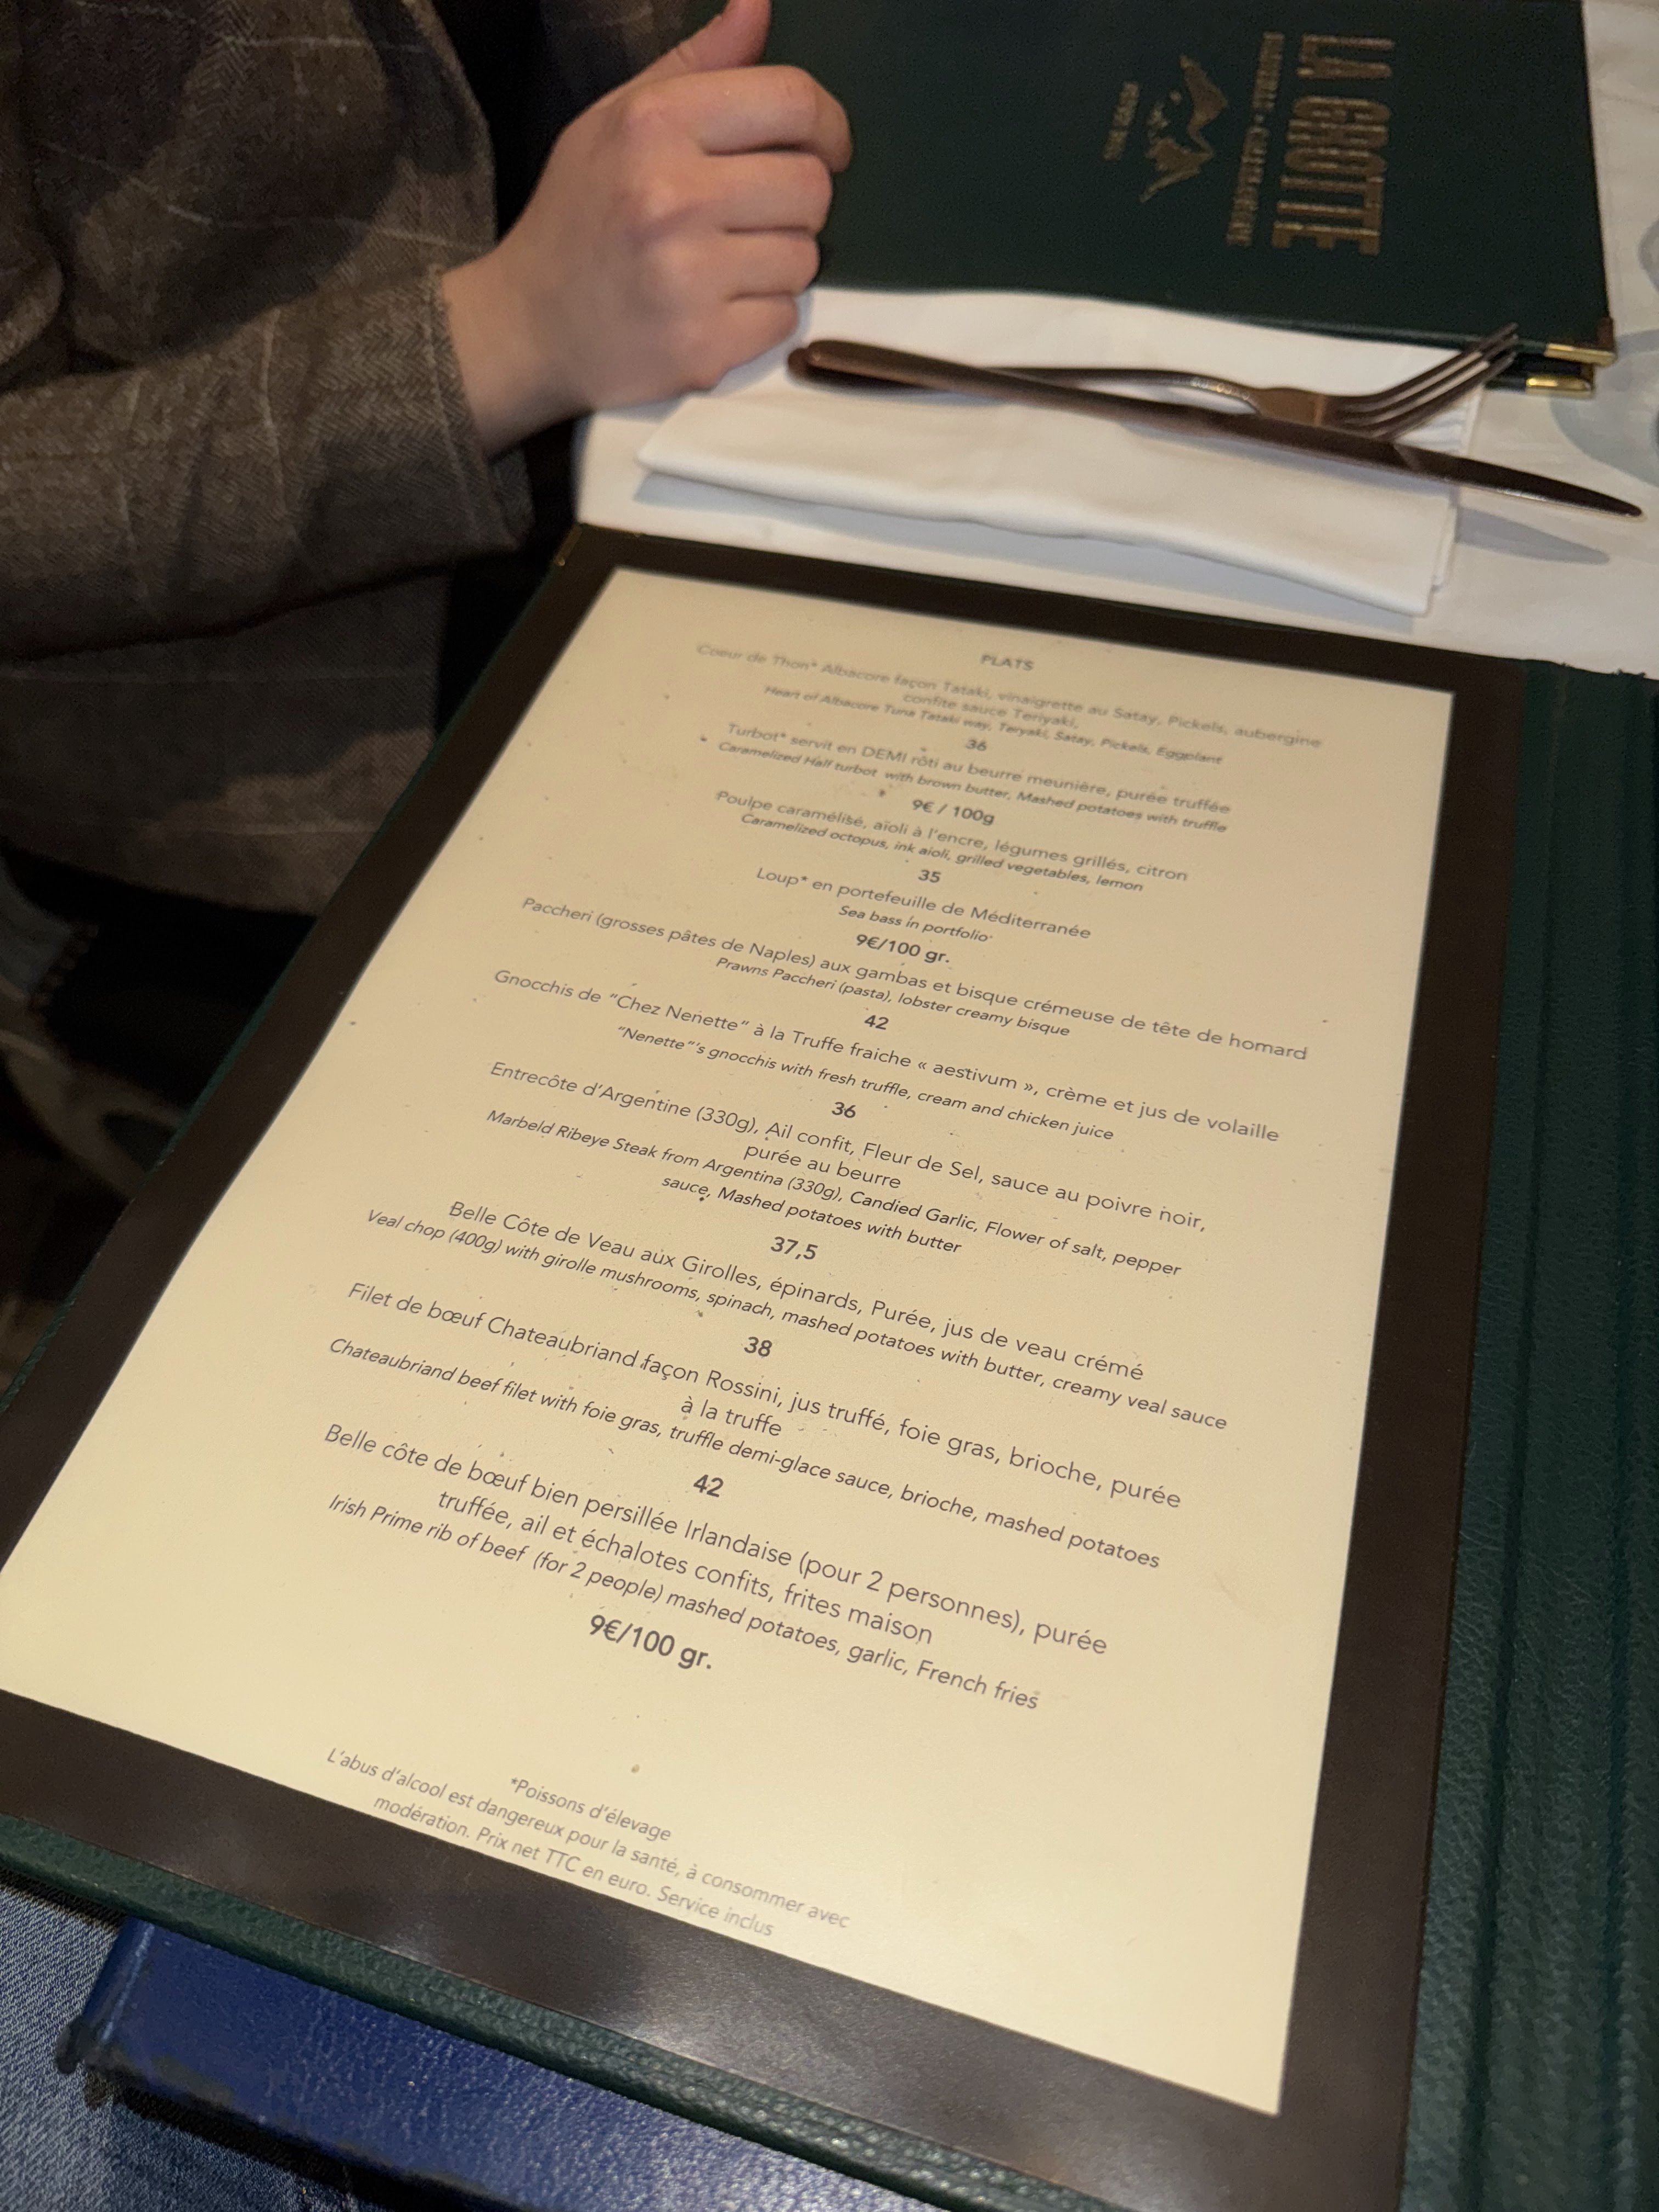 LA GROTTE
PLATS
Coeur de Thon* Albacore façon Tataki, vinaigrette au Satay, Pickels, aubergine
confite sauce Teriyaki,
Heart of Albacore Tuna Tataki way, Teryaki, Satay, Pickels, Eggplant
36
Turbot* servit en DEMI rôti au beurre meunière, purée truffée
Caramelized Half turbot with brown butter, Mashed potatoes with truffle
9€ / 100g
Poulpe caramélisé, aïoli à l'encre, légumes grillés, citron
Caramelized octopus, ink aioli, grilled vegetables, lemon
35
Loup* en portefeuille de Méditerranée
Sea bass in portfolio
9€/100 gr.
Paccheri (grosses pâtes de Naples) aux gambas et bisque crémeuse de tête de homard
Prawns Paccheri (pasta), lobster creamy bisque
42
Gnocchis de "Chez Nenette" à la Truffe fraiche « aestivum », crème et jus de volaille
"Nenette"'s gnocchis with fresh truffle, cream and chicken juice
36
Entrecôte d'Argentine (330g), Ail confit, Fleur de Sel, sauce au poivre noir,
purée au beurre
Marbeld Ribeye Steak from Argentina (330g), Candied Garlic, Flower of salt, pepper
sauce, Mashed potatoes with butter
37,5
Belle Côte de Veau aux Girolles, épinards, Purée, jus de veau crémé
Veal chop (400g) with girolle mushrooms, spinach, mashed potatoes with butter, creamy veal sauce
38
Filet de bœuf Chateaubriand façon Rossini, jus truffé, foie gras, brioche, purée
à la truffe
Chateaubriand beef filet with foie gras, truffle demi-glace sauce, brioche, mashed potatoes
42
Belle côte de bœuf bien persillée Irlandaise (pour 2 personnes), purée
truffée, ail et échalotes confits, frites maison
Irish Prime rib of beef (for 2 people) mashed potatoes, garlic, French fries
9€/100 gr.
*Poissons d'élevage
L'abus d'alcool est dangereux pour la santé, à consommer avec
modération. Prix net TTC en euro. Service inclus